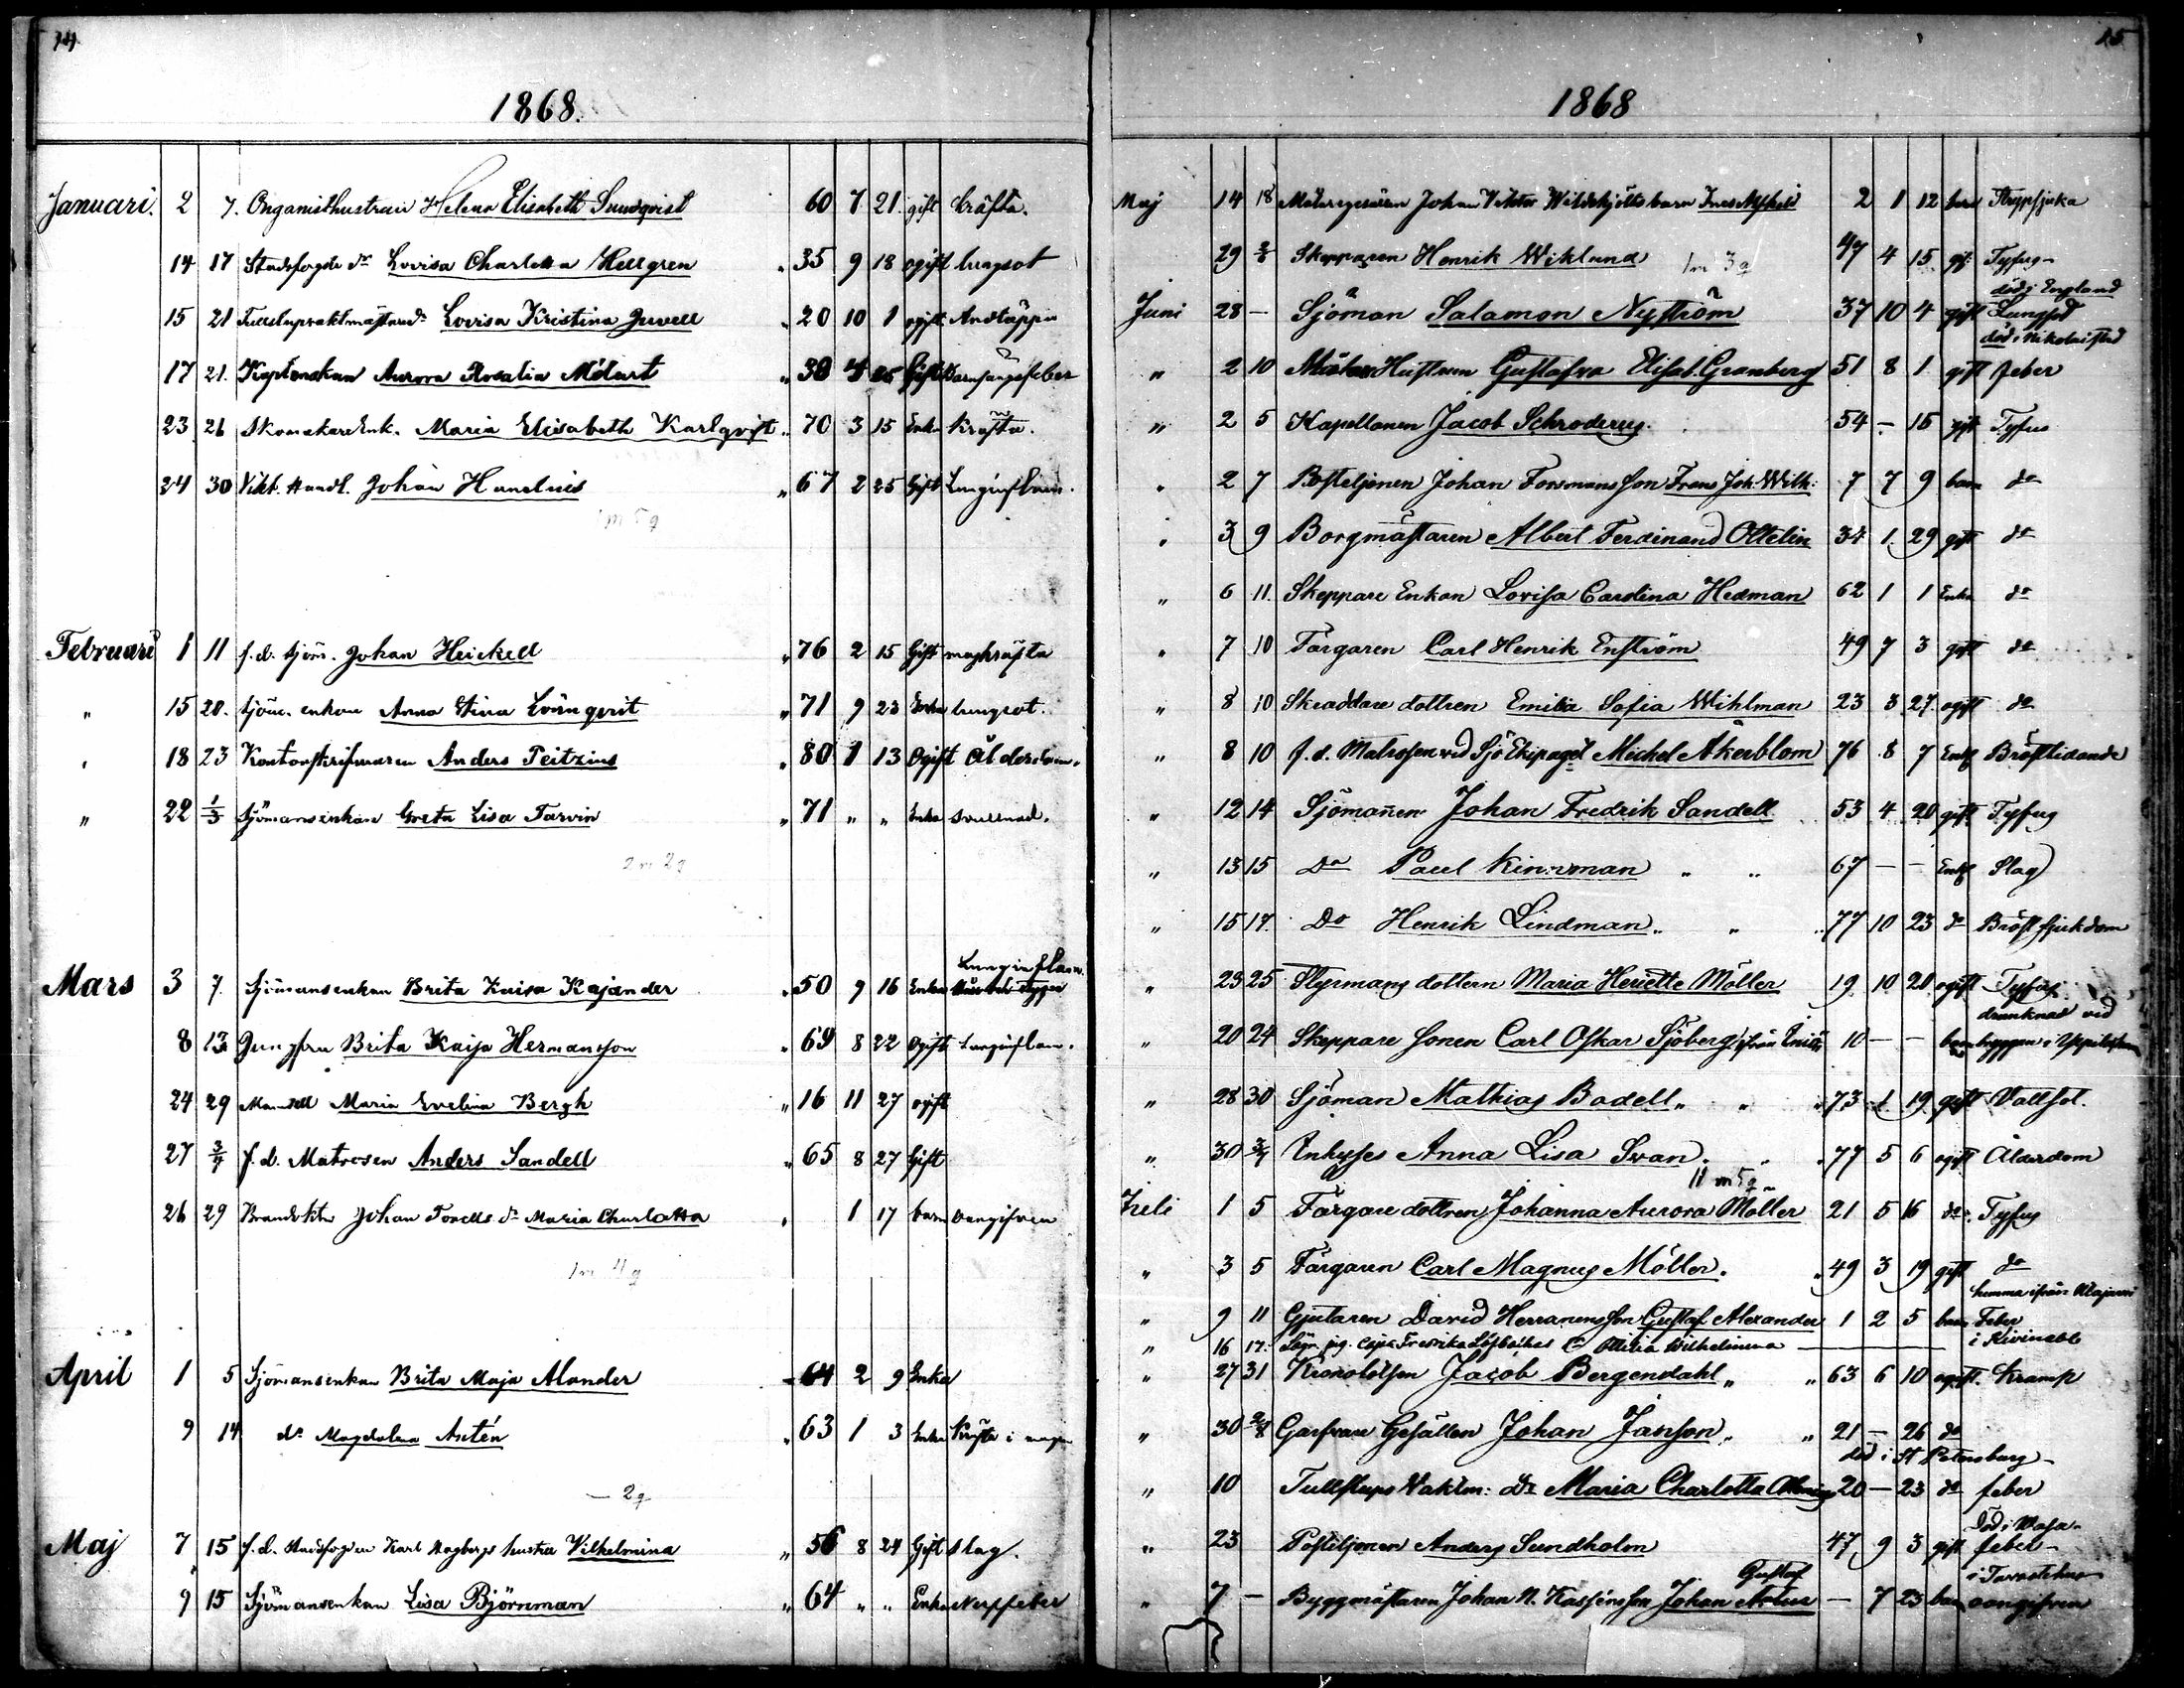 14
1868.
Januari. 2 7. Organisthustrun Helena Elisabeth Sundqvist 60 7 21. gift kräfta.
14 17 Stadsfogde dr Lovisa Charlotta Hellgren 35 9 18 ogift lungsot
15 21 Lovisa Kristina Juvell 20 10 1 ogift Andtäppa
17 21. Kaptenskan Aurora Rosalia Mélart 38 4 25 Gift Barnsängsfeber
23 26 Skomakare Enk. Maria Elisabeth Karlqvist 70 3 15 Enka Kräfta.
24 30 Vikt. Handl. Johan Hunelius 67 2 25 Gift Lunginflam.
1 m 5 q
Februari 1 11 f.d. sjöm. Johan Heickell 76 2 15 Gift magkräfta
" 15 20. sjöm. enkan Anna Stina Lönnqvist 71 9 23 Enka lungsot.
" 18 23 Kontorsskrifvaren Anders Peitzius 80 1 13 Ogift Ålderdom.
" 22 1/3 Sjömansenkan Greta Lisa Tarvin 71 " " Enka svullnad.
2 m 2 q
Lunginflam.
Mars 3 7. Sjömansenkan Brita Kaisa Kajander 50 9 16 Enka
8 13 Jungfru Brita Kaisa Hermansson 69 8 22 Ogift Lunginflam.
24 29 Mamsell Maria Evelina Bergh 16 11 27 ogift
27 3/4 f.d. Matrosen Anders Sandell 65 8 27 Gift
26 29 Johan Forells dr Maria Charlotta 1 17 barn oangifven
1 m 4 q
April 1 5 Sjömansenkan Brita Maja Alander 64 2 9 Enka
9 14 do Magdalena Antén 63 1 3 Enka Kräfta i magen
– 2 q
Maj 7 15 f.d. Stadsfogden Karl Hagbergs hustru Vilhelmina 56 8 24 Gift slag.
9 15 Sjömansenkan Lisa Björnman 64 " " Enka Nerffeber
15
1868
Maj 14 18 Johan Viktor Wildskjölts barn 2 1 12 barn Strypsjuka
29 2/6 Skepparen Henrik Wiklund 1 m 3 q 47 4 15 gift Tyfus
död i England
Juni 28 – Sjöman Salamon Nyström 37 10 4 gift Lungsot
död i Nikolaistad
" 2 10 Hustrun Gustafva Elisab. Granberg 51 8 1 gift feber
" 2 5 Kapellanen Jacob Schroderus 54 – 15 gift Tyfus
" 2 7 Postiljonen Johan Forsmans son Frans Joh. Wilh. 7 7 9 barn do
" 3 9 Borgmästaren Albert Ferdinand Ottelin 34 1 29 gift do
" 6 11. Skeppare Enkan Lovisa Carolina Hedman 62 1 1 Enka do
" 7 10 Färgaren Carl Henrik Enström 49 7 3 gift do
" 8 10 Skräddare dottren Emilia Sofia Wihlman 23 3 27. ogift do
" 8 10 f.d. Matrosen vid Sjö Ekipaget Michel Åkerblom 76 8 7 Enkl Bröstlidande
" 12 14 Sjömannen Johan Fredrik Sandell 53 4 20 gift Tyfus
" 13 15 do Paul Kinnman " " 67 – – Enkl Slag
" 15 17. Do Henrik Lindman " " 77 10 23 do Bröstsjukdom
" 23 25 Styrmans dottern Maria Heriette Möller 19 10 20 ogift Tyfus
drunknad vid
" 20 24 Skeppare sonen Carl Oskar Sjöberg 10 – – barn
" 28 30 Sjöman Mathias Bodell " " 73 1 19 gift Vattsot.
" 30 3/7 Inhyses Anna Lisa Svan. 77 5 6 ogift Ålderdom
11 m 5 q
Juli 1 5 Färgare dottren Johanna Aurora Möller 21 5 16 do Tyfus
" 3 5 Färgaren Carl Magnus Möller. 49 3 19 gift do
" 9 11 Gjutaren David Herranens son Gustaf Alexander 1 2 5 barn Feber
" 16 17. Fredrika Wilhelmina
" 27 31 Jacob Bergendahl " " 63 6 10 ogift. Kramp
" 30 2/8 Garfvare Gesällen Johan Janson " " 21 – 26 do
död i St Petersburg
" 10 Tullstups Vaktm: Dr Maria Charlotta 20 – 23 do feber
Död i Wasa
" 23 Postiljonen Anders Sundholm 47 9 3 gift feber
Gustaf i Tavastehus
" 7 – Byggmästaren Johan N. Johan – 7 23 barn oangifven